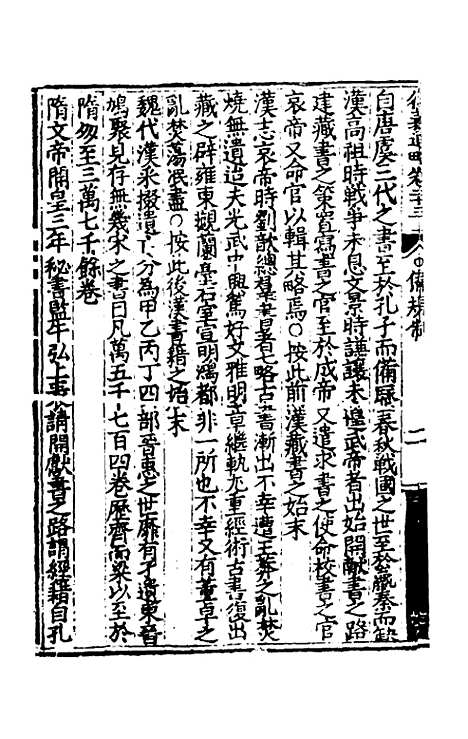 自唐虞三代之書至於孔子而備歷春秋戰國之世至於嬴秦而缺
漢高祖時戰爭未息文景時謙讓未遑武帝者出始開獻書之路
建藏書之策置寫書之官至於成帝又遣求書之使命校書之官
哀帝又命官以輯其略焉○按此前漢藏書之始末
漢志哀帝時劉歆總羣書著七略古書漸出不幸遭王莽之亂焚
燒無遺迨夫光武中興篤好文雅明章繼軌尤重經術古書復出
藏之辟雍東觀蘭臺石室宣明鴻都非一所也不幸又有董卓之
亂焚蕩泯盡○按此後漢書籍之始末
魏代漢采掇遺亡分為甲乙丙丁四部晉惠之世靡有孑遺東晉
鳩聚見存無幾宋之書目凡萬五千七百四卷歷齊而梁以至於
隋初至三萬七千餘卷
隋文帝開皇三年秘書監牛弘上表請開獻書之路謂經籍自孔